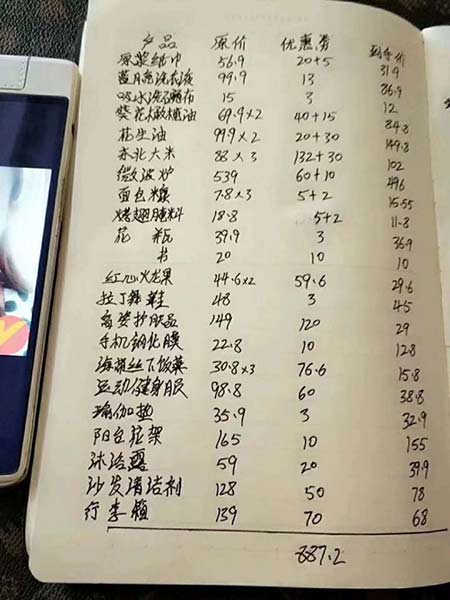 产品 原价 优惠券 到手价
原浆纸巾 56.9 20+5 31.9
蓝月亮洗衣液 99.9 13 86.9
吸水洗碗布 15 3 12
葵花橄榄油 69.9×2 40+15 84.8
花生油 99.9×2 20+30 149.8
东北大米 88×3 132+30 102
微波炉 539 60+10 496
面包糠 7.8×3 5+2 15.55
烤翅腌料 18.8 5+2 11.8
花瓶 39.9 3 36.9
书 20 10 10
红心火龙果 44.6×2 59.6 29.6
拉丁舞鞋 48 3 45
护肤品 149 120 29
手机钢化膜 22.8 10 12.8
海带丝下饭菜 30.8×3 76.6 15.8
运动健身服 98.8 60 38.8
瑜伽垫 35.9 3 32.9
阳台花架 165 10 155
沐浴露 59 20 39.9
沙发清洁剂 128 50 78
行李箱 139 70 68
887.2